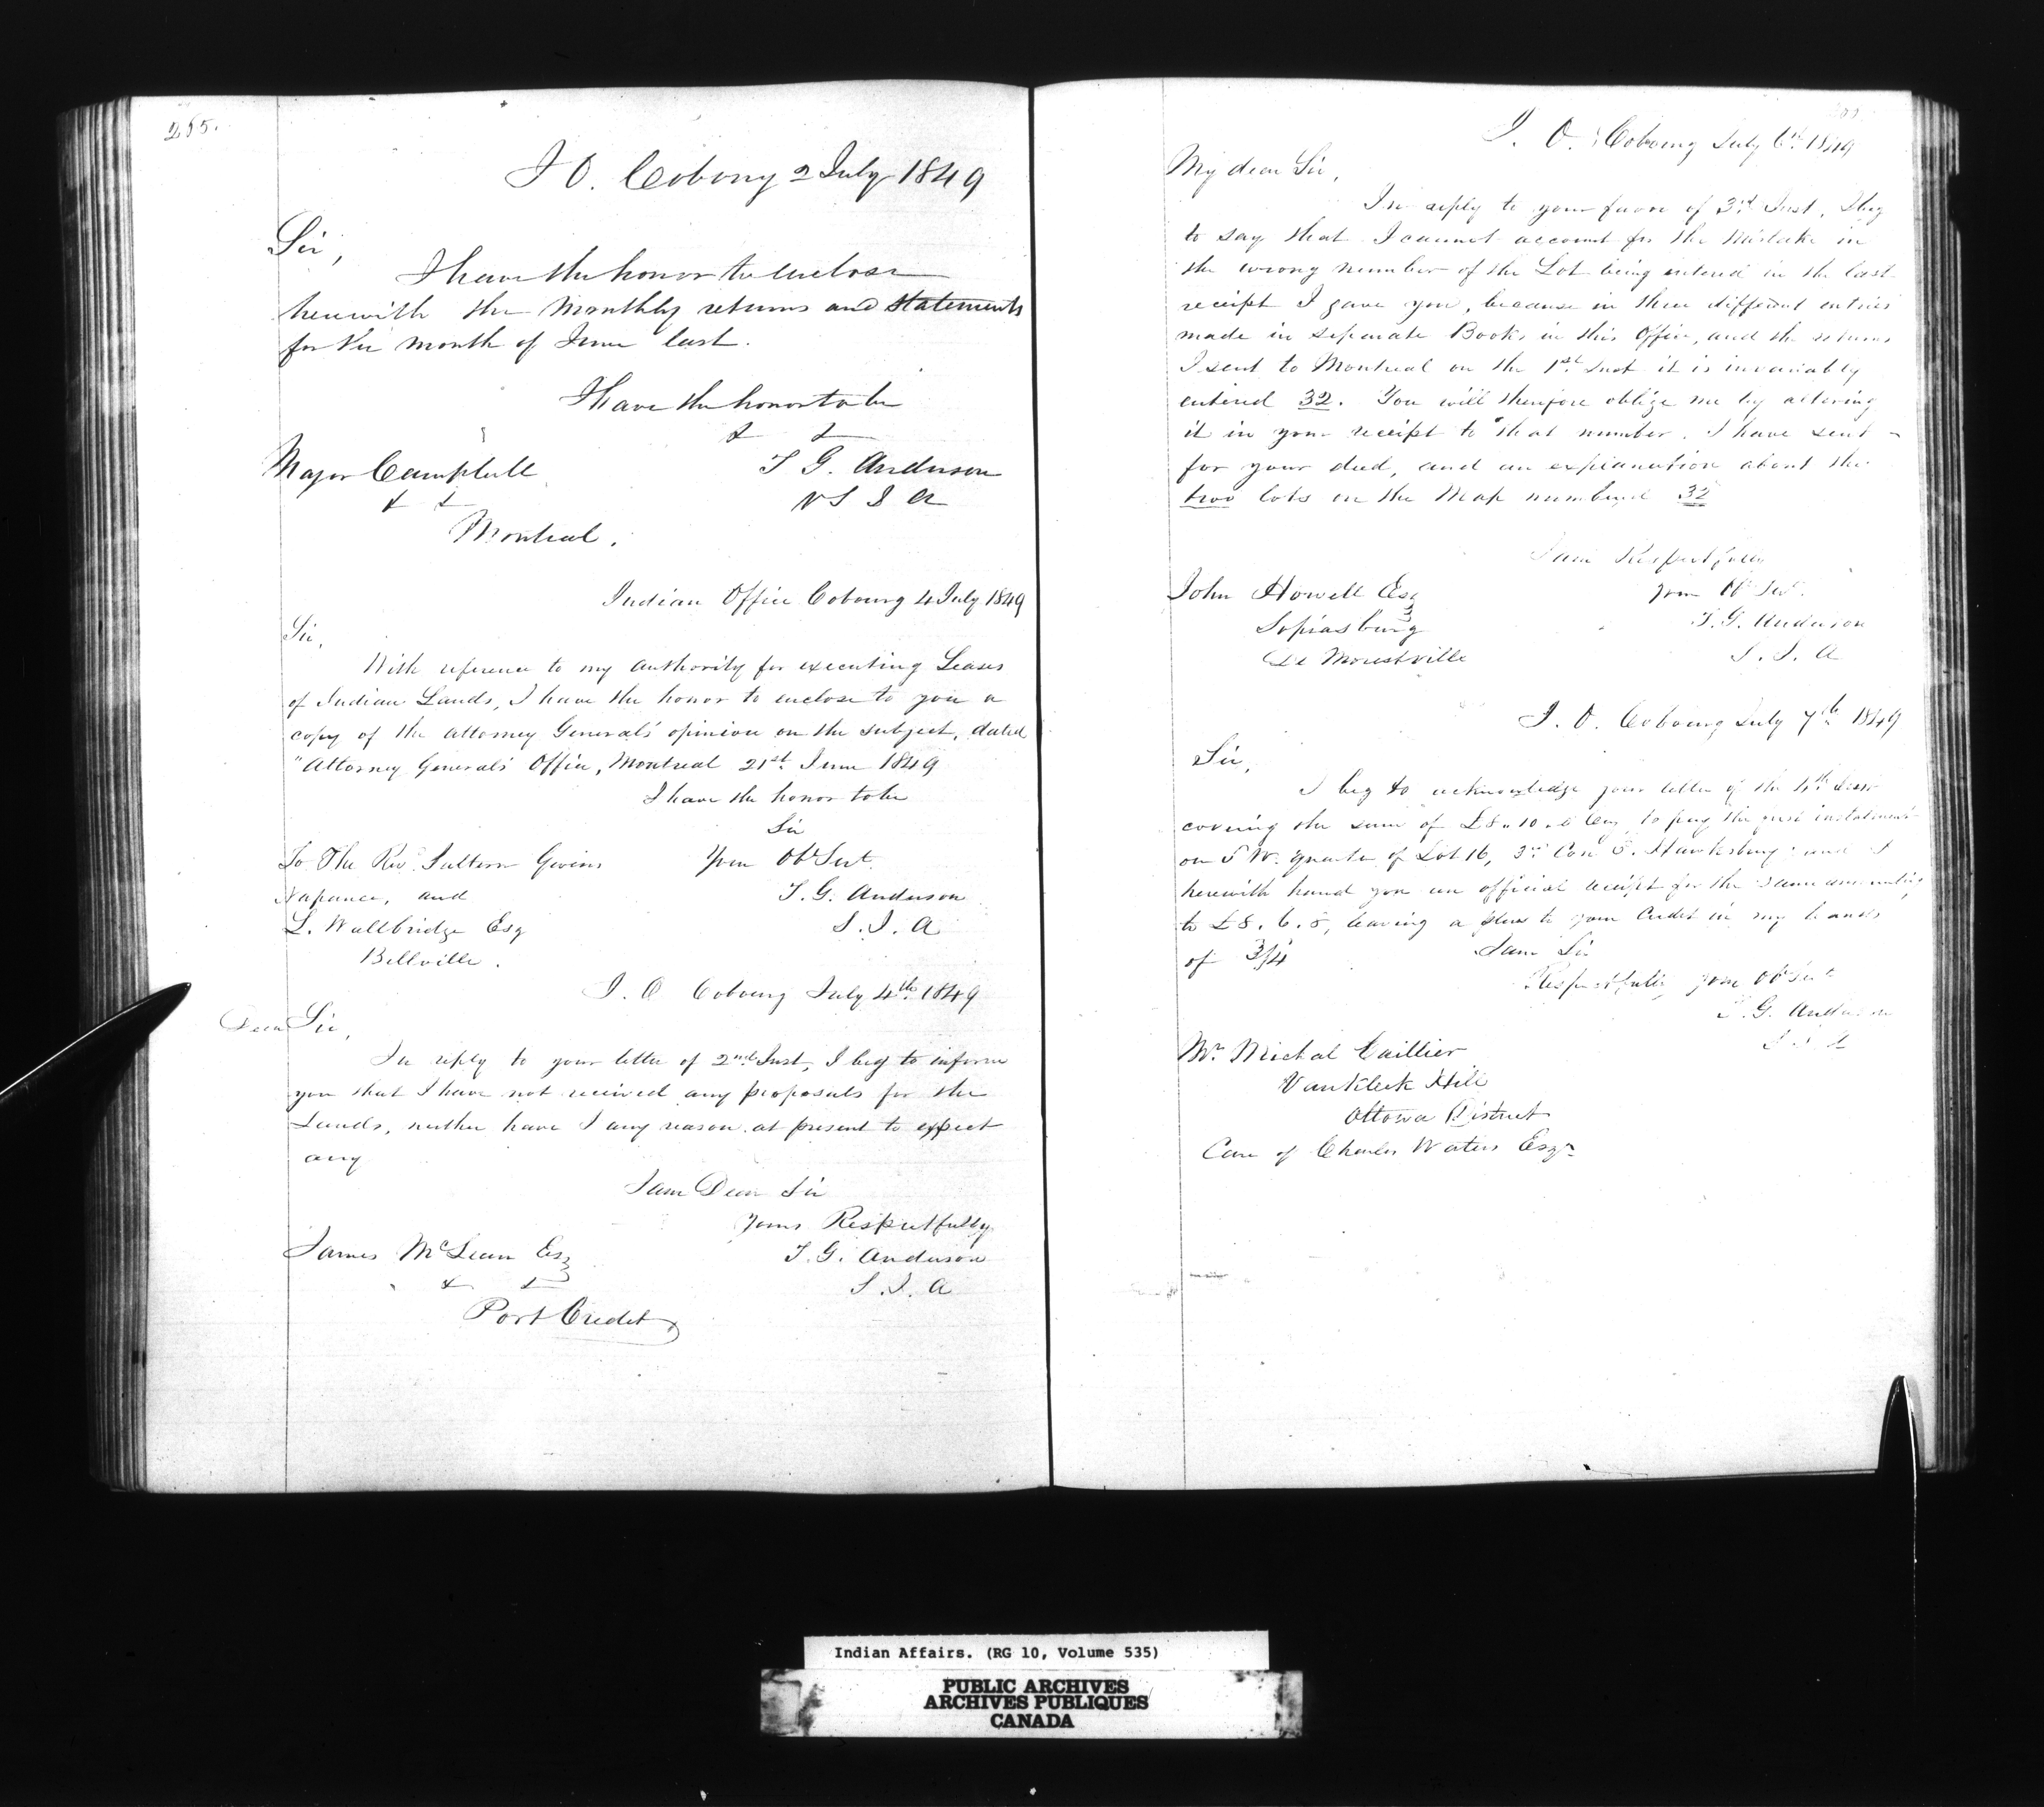 265.
I O. Cobourg 2 July 1849
Sir,
I have the honor to enclose
herewith the Monthly returns and Statements
for the month of June last.
I have the honor to be
& &
Major Campbell
T G. Anderson
V S I A
& &
Montreal.
Indian Office Cobourg 4 July 1849
Sir,
With reference to my authority for executing Leases
of Indian Lands, I have the honor to enclose to you a
copy of the Attorney General's opinion on the subject, dated
"Attorney General's Office, Montreal 21st June 1849
I have the honor to be
Sir
To The Revd Saltern Givins
Your Obt Servt
Napanee, and
T. G. Anderson
L. Wallbridge Esq
S. I. A
Bellville.
I. O Cobourg July 4th 1849
Dear Sir,
In reply to your letter of 2nd Inst, I beg to inform
you that I have not received any proposals for the
Lands, neither have I any reason at present to expect
any
I am Dear Sir
Yours Respectfully
James McLean Esq
T. G. Anderson
& &
S. I. A
Port Credit
I. O. Cobourg July 6th 1849
My dear Sir,
In reply to your favor of 3rd Inst, I beg
to say that I cannot account for the Mistake in
the wrong number of the Lot being entered in the last
receipt I gave you, because in three different entries
made in separate Books in this Office, and the returns
I sent to Montreal on the 1st Inst it is invariably
entered 32. You will therefore oblige me by altering
it in your receipt to that number. I have sent
for your deed, and an explanation about the
two lots on the Map numbered 32
I am Respectfully
John Howell Esq
Your Obt Servt.
Sophiasburg
T. G. Anderson
De Morestville
S. I. A
I. O. Cobourg July 7th 1849
Sir,
I beg to acknowledge your letter of the 4th Inst
covering the sum of £8.10.0 Cuy to pay the first instalment
on S W. quarter of Lot 16, 3rd Con E. Hawksbury and I
herewith hand you an official receipt for the same amounting
to £8.6.8, leaving a plus to your Credit in my hands
of 3/4
I am Sir
Respectfully your Obt Servt
T. G. Anderson
S I A
Mr Michal Caillier
VanKleek Hill
Ottowa District
Care of Charles Waters Esqr
Indian Affairs. (RG 10, Volume 535)
PUBLIC ARCHIVES
ARCHIVES PUBLIQUES
CANADA